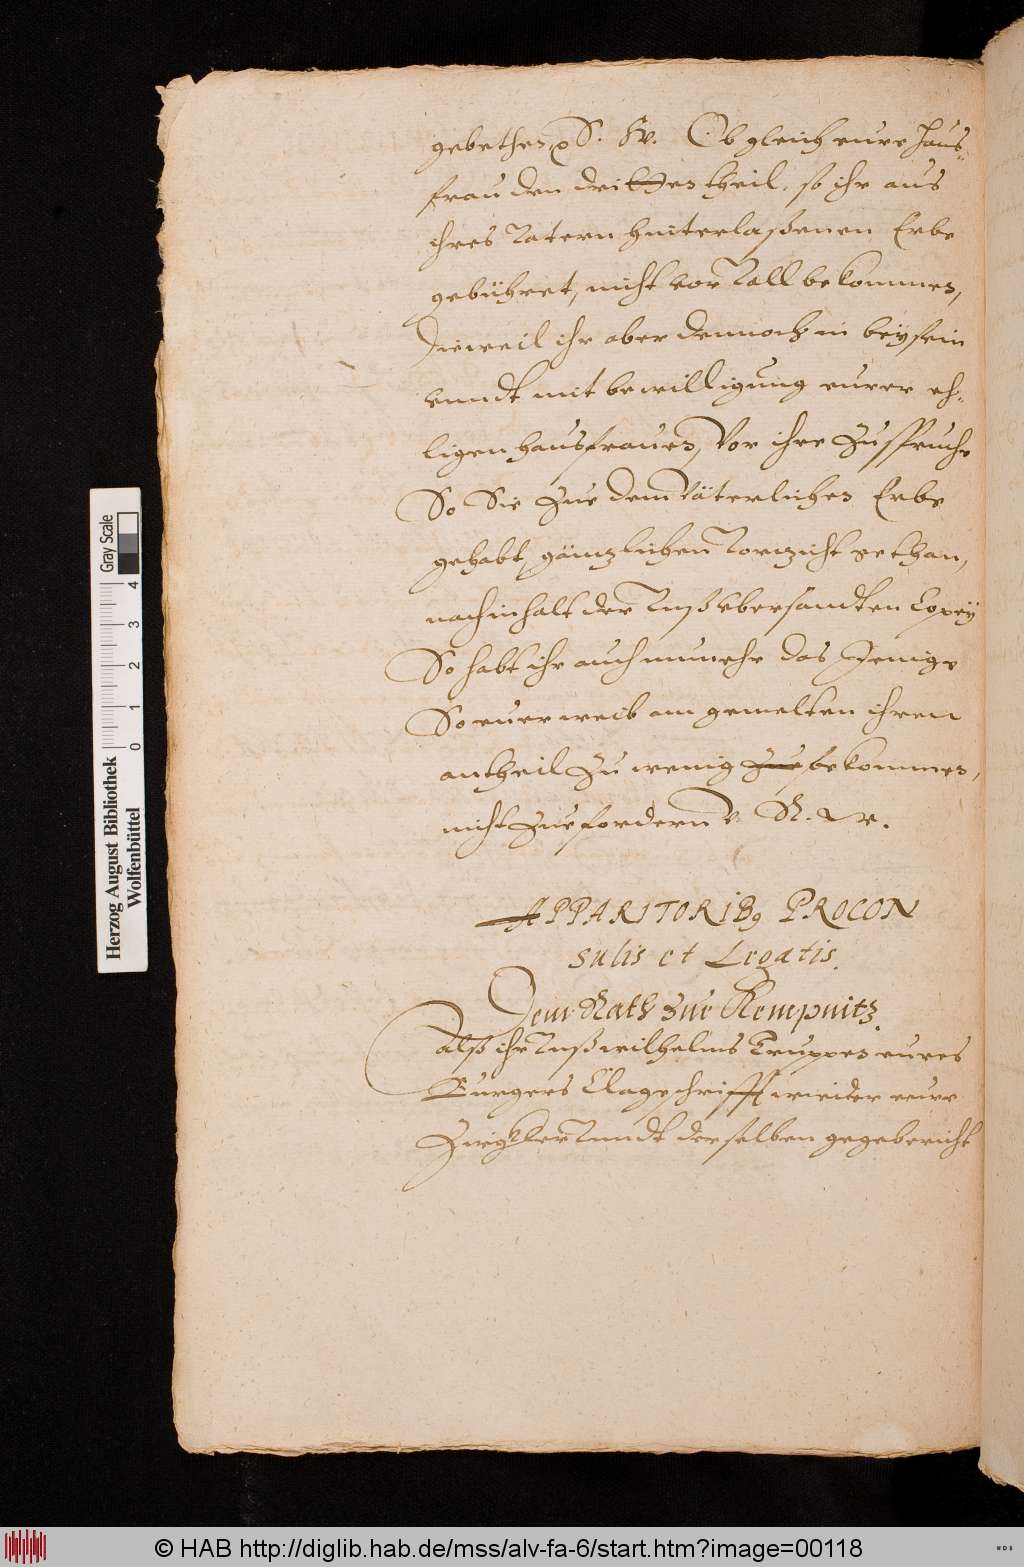 gebethen, S. W. Ob gleich eure Haus-
frau den dritten theil, so ihr aus
ihres Vatern hinterlaßenen Erbe
gebühret, nicht vor vall bekommen,
Dieweil ihr aber dennoch in beysein
vnndt mit bewilligung eurer eh-
ligen hausfrauen, vor ihre Zuspruche
So Sie Zue dem Väterlichen Erbe
gehabt, gäntzlichen vorzicht gethan,
nach inhalt der vnß vbersandten Copey
So habt ihr auch nunehr das Jenige
So euer weib am gemelten ihren
antheil Zu wenig Zue bekommen,
nicht Zue fordern V. R. W.
APPARITORIB9 PROCON
sulis et Legatis.
Dem Rath Zue Kempnitz.
Alß ihr vnß wilhelms Truppen eures
Burgers Clageschrifft wieder eure
Zirgkler vnndt derselben gegebericht
Herzog August Bibliothek
Wolfenbüttel
Gray Scale
0 1 2 3 4
© HAB http://diglib.hab.de/mss/alv-fa-6/start.htm?image=00118